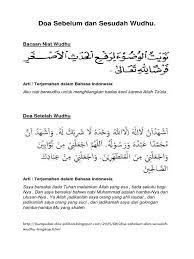 Doa Sebelum dan Sesudah Wudhu.
Bacaan Niat Wudhu
نَوَيْتُ الْوُضُوْءَ لِرَفْعِ الْحَدَثِ الْاَصْغَرِ
فَرْضًا لِلّٰهِ تَعَالٰى
Arti / Terjemahan dalam Bahasa Indonesia
Aku niat berwudhu untuk menghilangkan hadas kecil karena Allah Ta'ala
Doa Setelah Wudhu
أَشْهَدُ أَنْ لَا إِلٰهَ إِلَّا اللهُ وَحْدَهُ لَا شَرِيْكَ لَهُ وَأَشْهَدُ
أَنَّ مُحَمَّدًا عَبْدُهُ وَرَسُوْلُهُ اَللّٰهُمَّ اجْعَلْنِيْ مِنَ
التَّوَّابِيْنَ وَاجْعَلْنِيْ مِنَ الْمُتَطَهِّرِيْنَ وَاجْعَلْنِيْ مِنْ
عِبَادِكَ الصَّالِحِيْنَ
Arti / Terjemahan dalam Bahasa Indonesia
Saya bersaksi tiada Tuhan melainkan Allah yang esa, tiada sekutu bagi-
Nya. Dan saya bersaksi bahwa Nabi Muhammad adalah hamba-Nya dan
utusan-Nya. Ya Allah jadikanlah saya orang yang ahli taubat, dan
jadikanlah saya orang yang suci, dan jadikanlah saya dari golongan
hamba-hamba Mu yang shaleh.